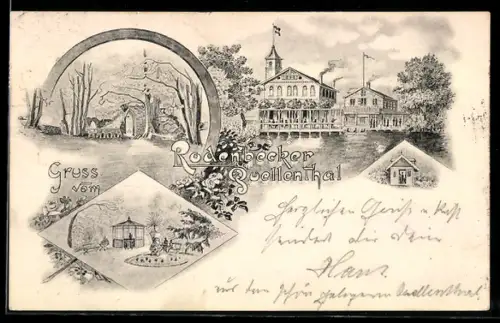 Gruss
vom
Rodenbecker
Quellenthal
Herzlichen Gruß u. Kuß
sendet dir dein
Hans
aus dem schön gelegenen Quellenthal